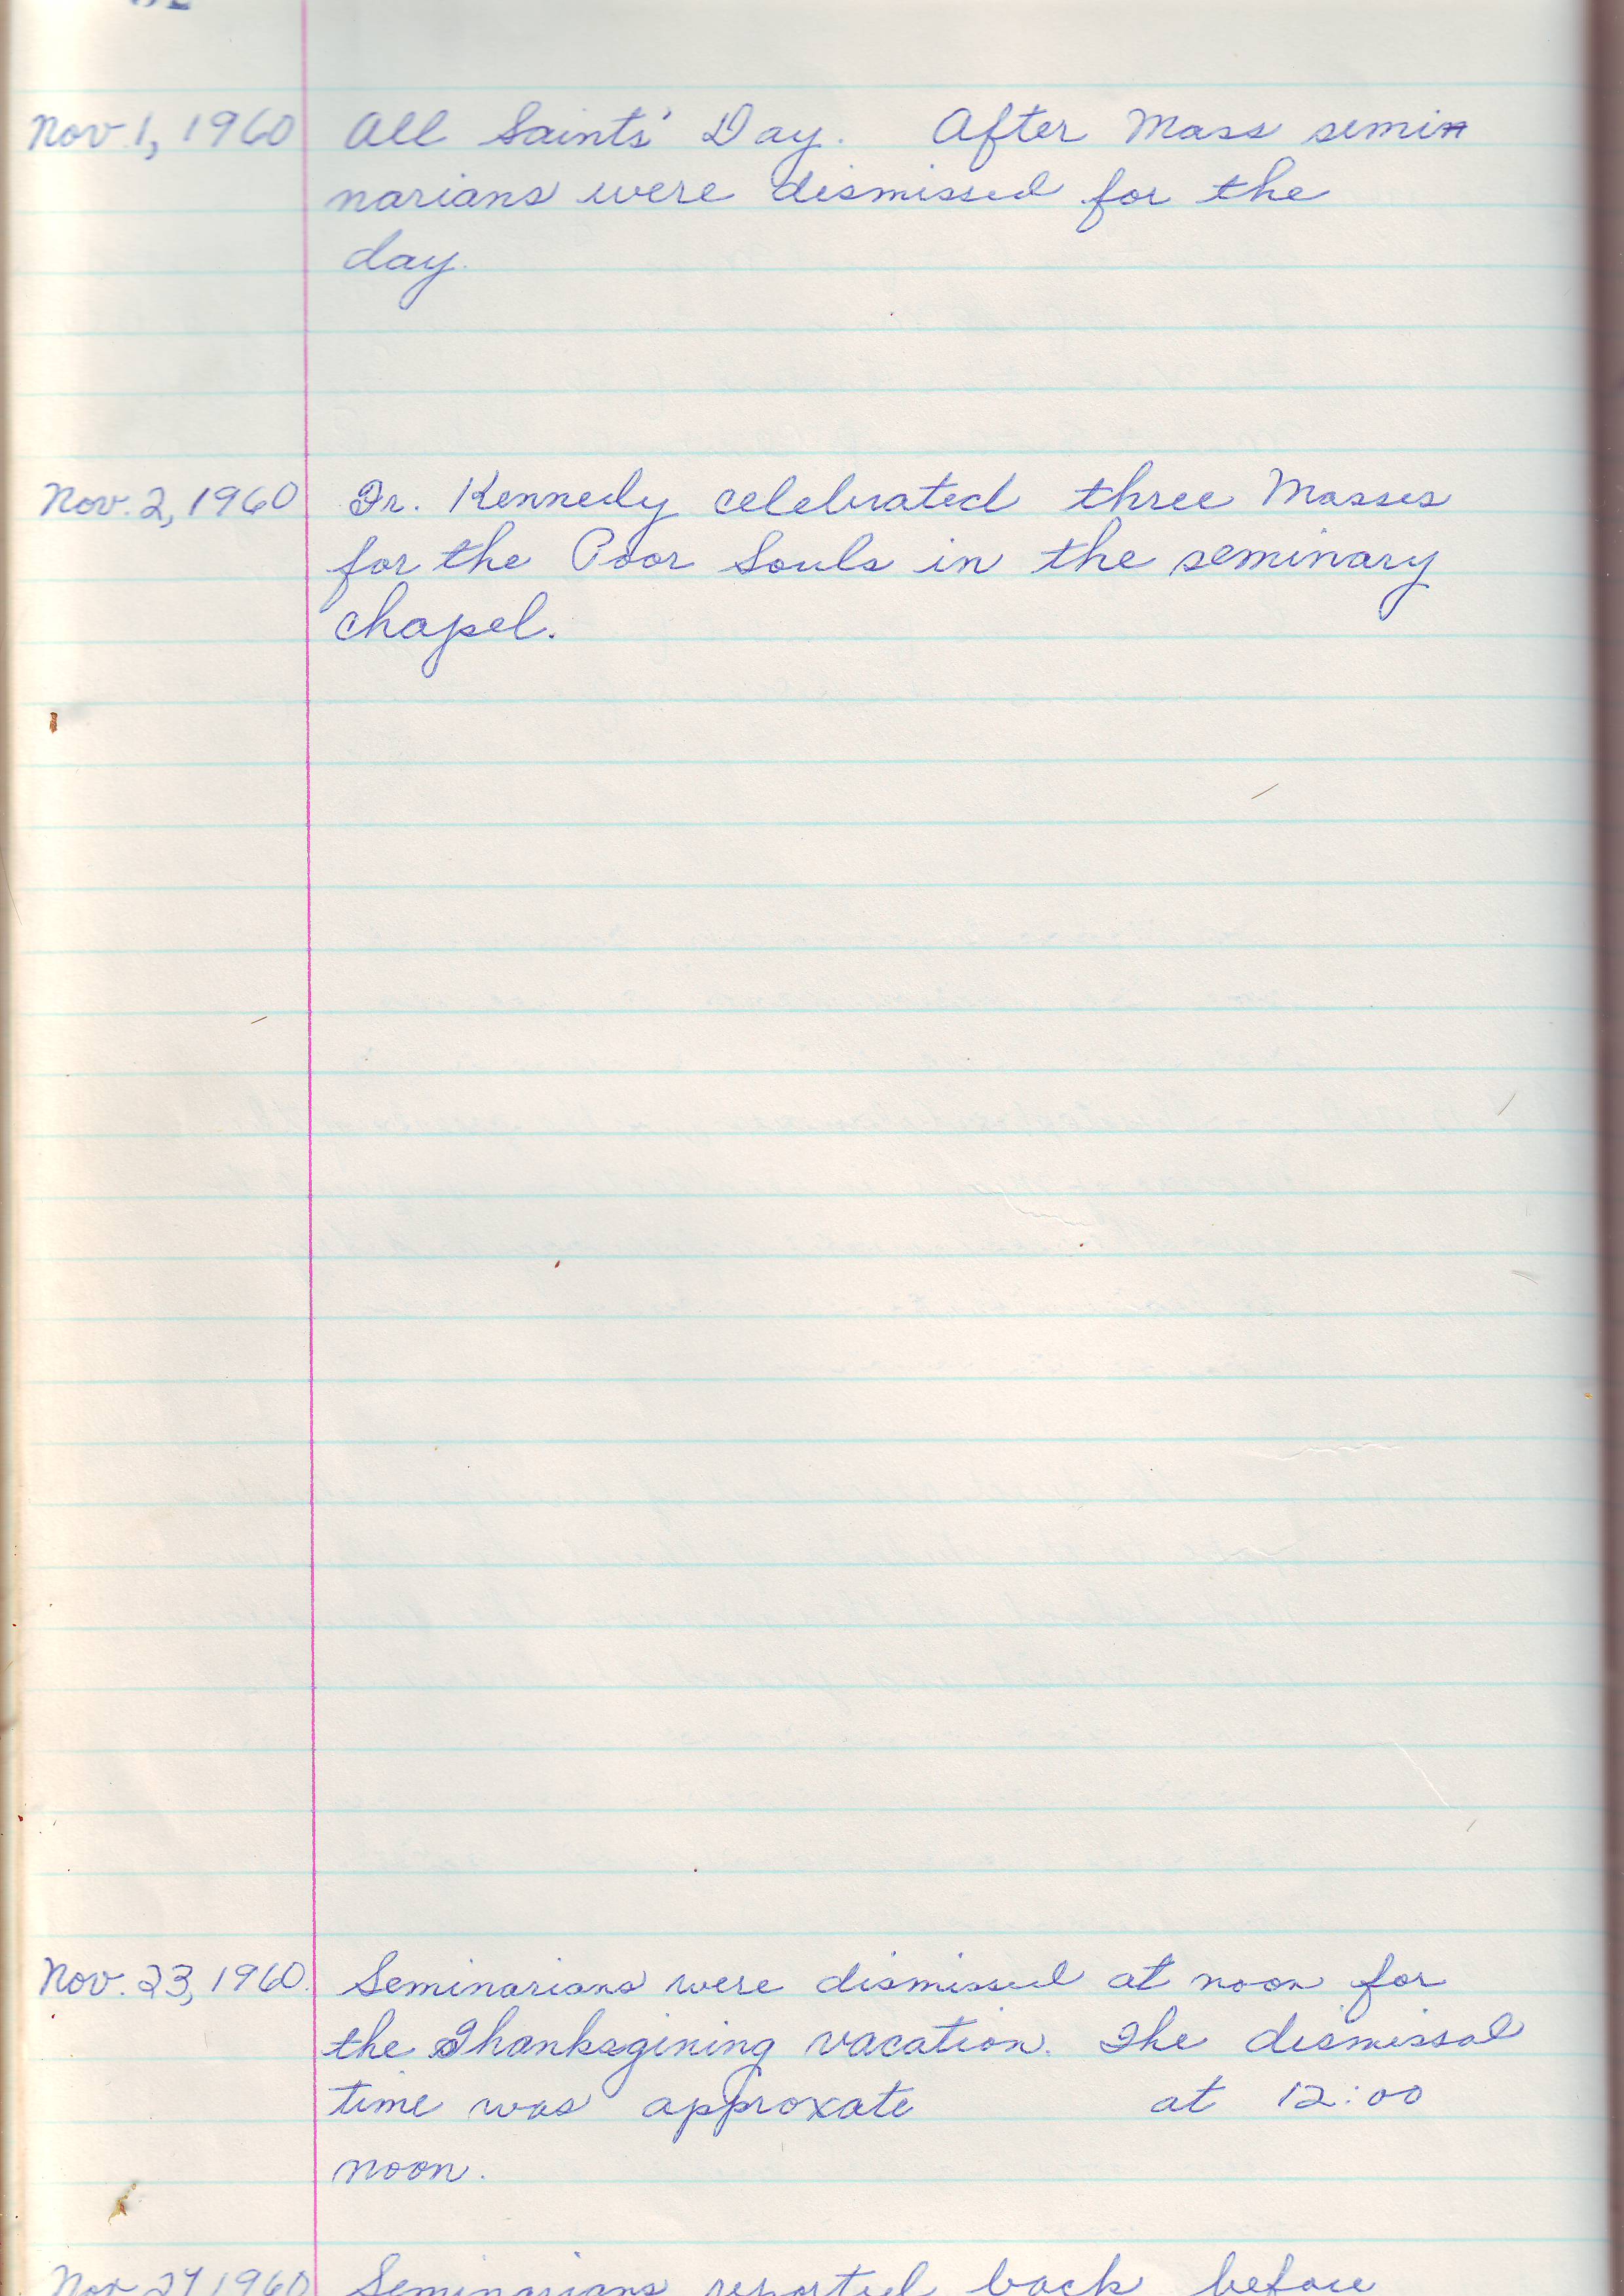 Nov. 1, 1960 All Saints' Day. After Mass semin
narians were dismissed for the
day.
Nov. 2, 1960 Fr. Kennedy celebrated three Masses
for the Poor Souls in the seminary
chapel.
Nov. 23, 1960. Seminarians were dismissed at noon for
the Thanksgining vacation. The dismissal
time was approxate at 12:00
noon.
Nov 27 1960 Seminarians reported back before